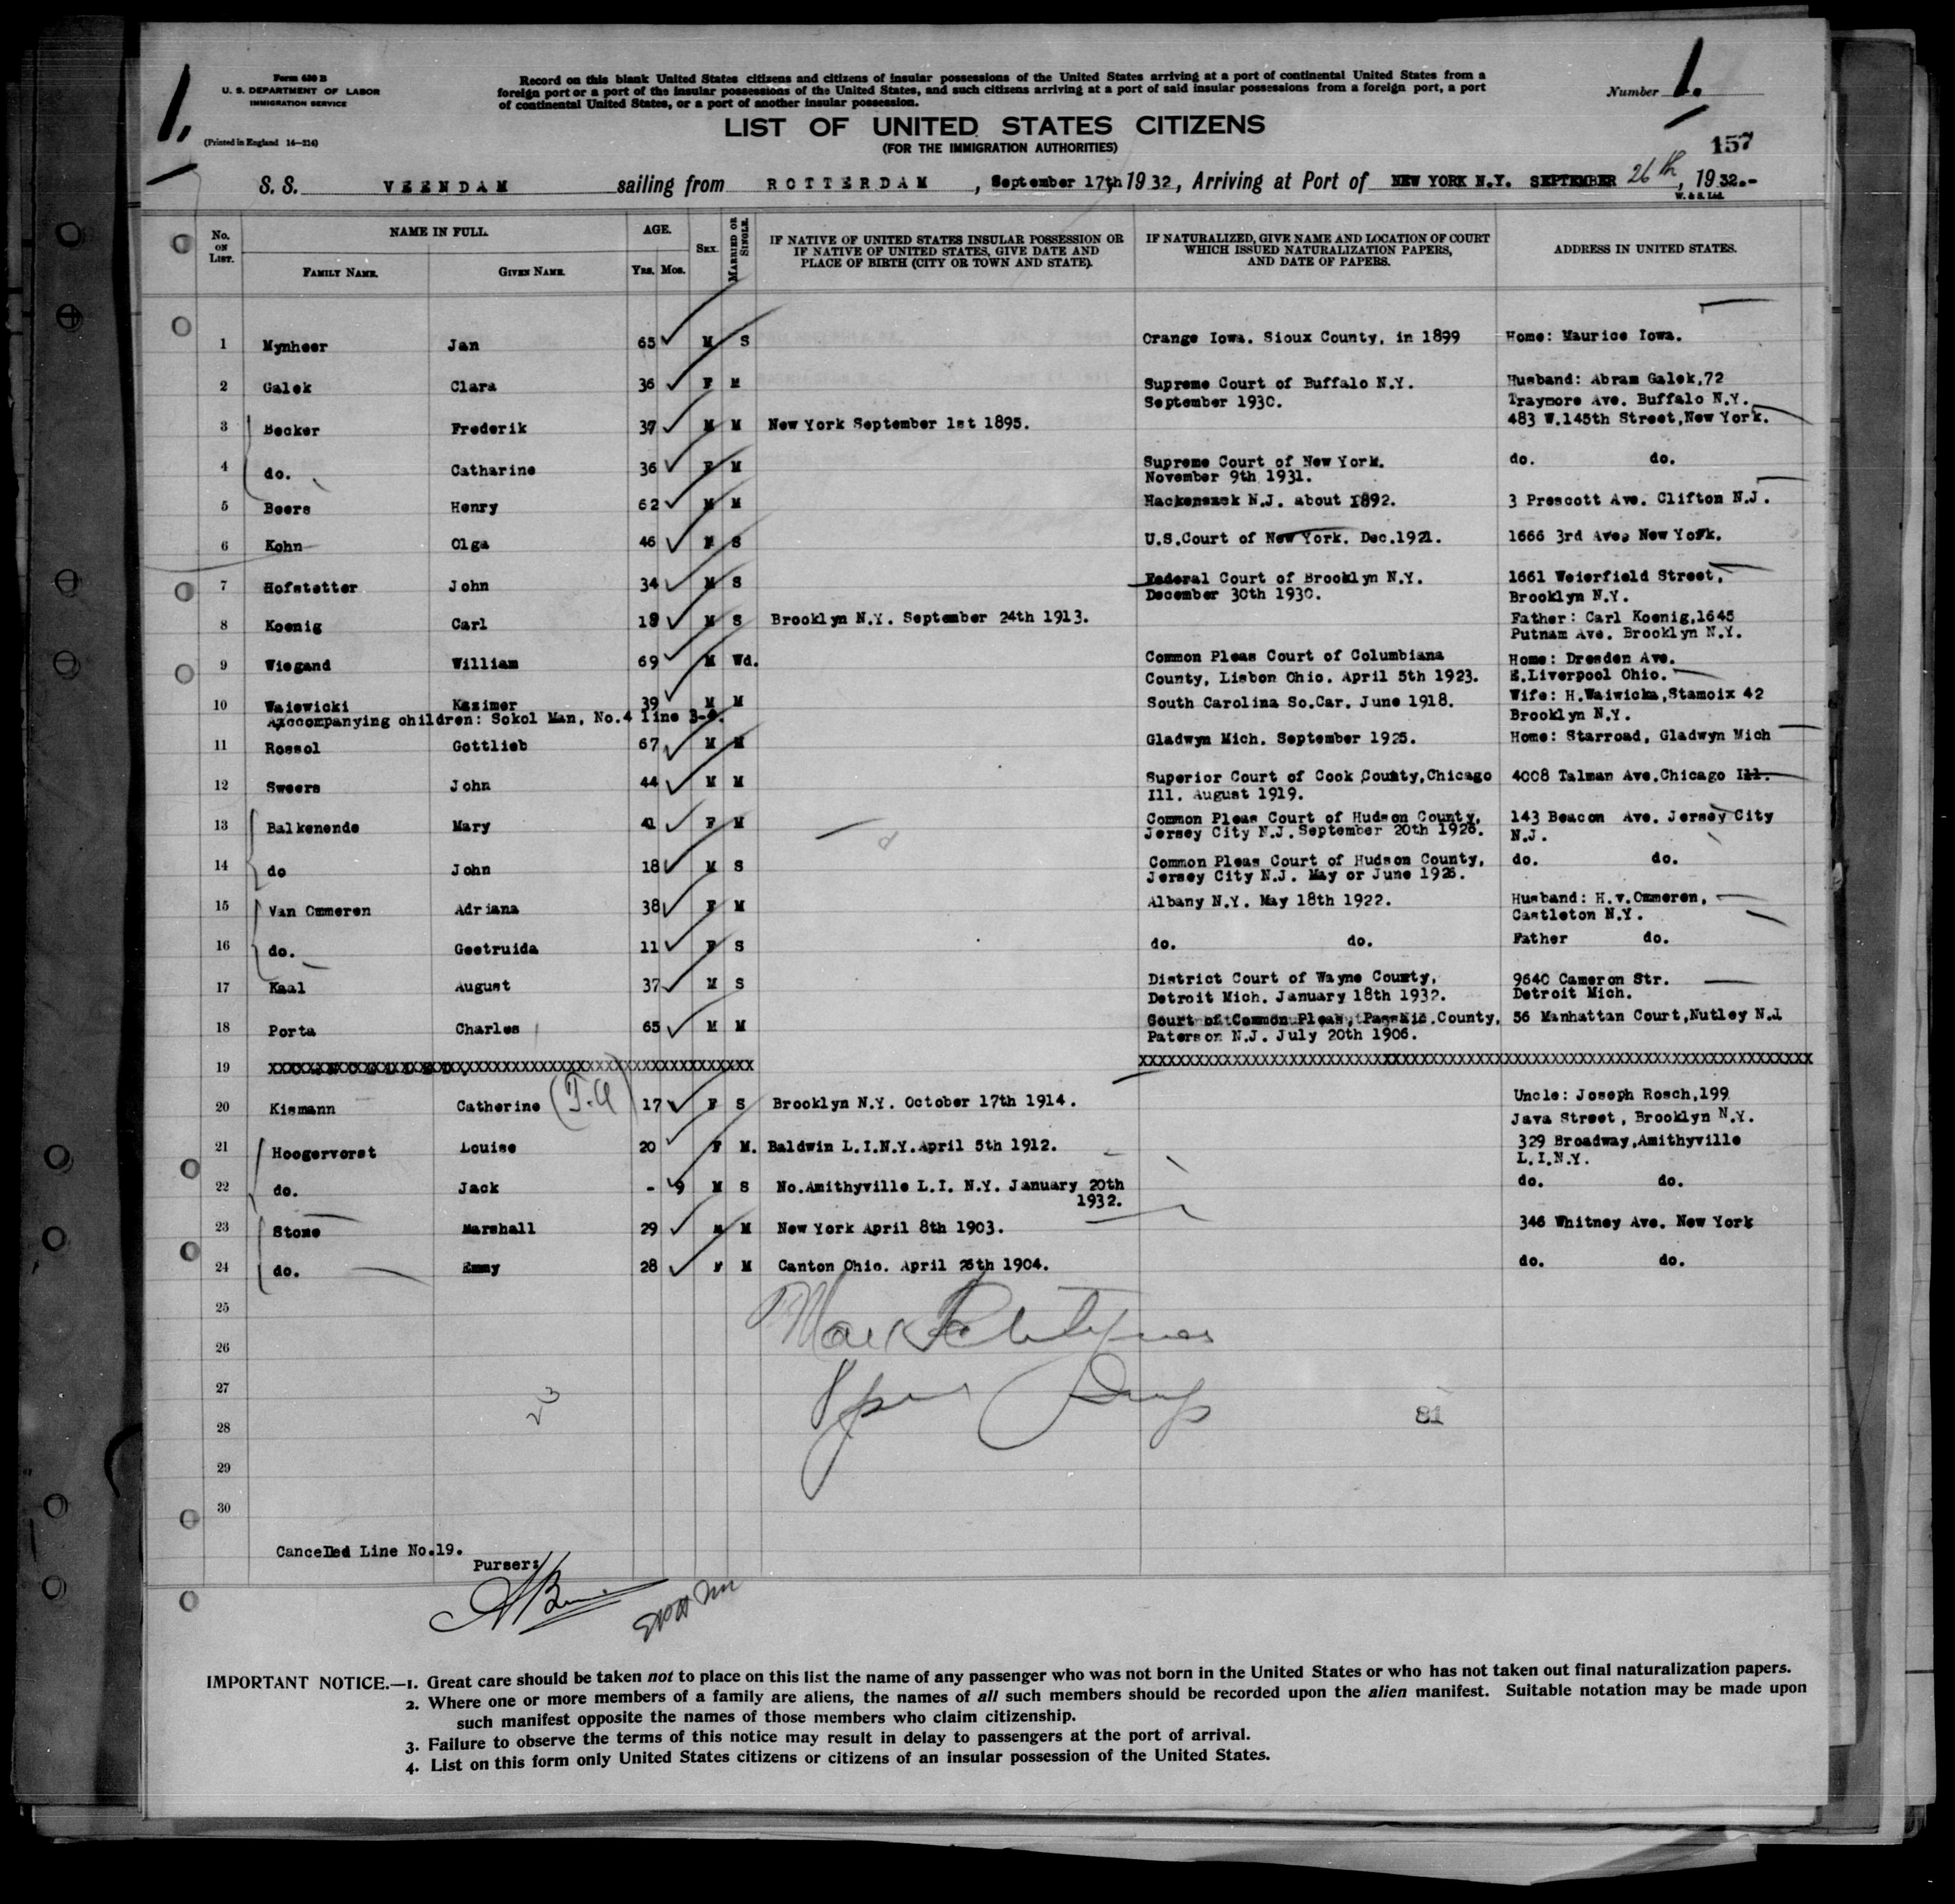 1.
Form 630 B
U. S. DEPARTMENT OF LABOR
IMMIGRATION SERVICE
(Printed in England 14—214)
Record on this blank United States citizens and citizens of insular possessions of the United States arriving at a port of continental United States from a
foreign port or a port of the insular possessions of the United States, and such citizens arriving at a port of said insular possessions from a foreign port, a port
of continental United States, or a port of another insular possession.
Number 1.
LIST OF UNITED STATES CITIZENS
(FOR THE IMMIGRATION AUTHORITIES)
157
S. S. VEENDAM sailing from ROTTERDAM, September 17th 1932, Arriving at Port of NEW YORK N.Y. SEPTEMBER 26th, 1932.-
W. & S. Ltd.
No. ON LIST. NAME IN FULL. AGE. SEX. MARRIED OR SINGLE. IF NATIVE OF UNITED STATES INSULAR POSSESSION OR IF NATIVE OF UNITED STATES, GIVE DATE AND PLACE OF BIRTH (CITY OR TOWN AND STATE). IF NATURALIZED, GIVE NAME AND LOCATION OF COURT WHICH ISSUED NATURALIZATION PAPERS, AND DATE OF PAPERS. ADDRESS IN UNITED STATES.
FAMILY NAME. GIVEN NAME. Yrs. Mos.
1 Mynheer Jan 65 M S Orange Iowa. Sioux County, in 1899 Home: Maurice Iowa.
2 Galek Clara 36 F M Supreme Court of Buffalo N.Y. Husband: Abram Galek,72
September 1930. Traymore Ave. Buffalo N.Y.
3 Becker Frederik 37 M M New York September 1st 1895. 483 W.145th Street,New York.
4 do. Catharine 36 F M Supreme Court of New York. do. do.
November 9th 1931.
5 Beers Henry 62 M M Hackensack N.J. about 1892. 3 Prescott Ave. Clifton N.J.
6 Kohn Olga 46 S U.S.Court of New York. Dec.1921. 1666 3rd Ave. New York.
7 Hofstetter John 34 M S Federal Court of Brooklyn N.Y. 1661 Weierfield Street,
December 30th 1930. Brooklyn N.Y.
8 Koenig Carl 18 M S Brooklyn N.Y. September 24th 1913. Father: Carl Koenig,1645
Putnam Ave. Brooklyn N.Y.
9 Wiegand William 69 M Wd. Common Pleas Court of Columbiana Home: Dresden Ave.
County, Lisbon Ohio. April 5th 1923. E.Liverpool Ohio.
10 Waiewicki Kazimer 39 M M South Carolina So.Car. June 1918. Wife: H.Waiwicka,Stamoix 42
Axccompanying children: Sokol Man, No.4 line 3-4. Brooklyn N.Y.
11 Rossol Gottlieb 67 M M Gladwyn Mich. September 1925. Home: Starroad, Gladwyn Mich
12 Sweers John 44 M M Superior Court of Cook County,Chicago 4008 Talman Ave.Chicago Ill.
Ill. August 1919.
13 Balkenende Mary 41 F M Common Pleas Court of Hudson County, 143 Beacon Ave. Jersey City
Jersey City N.J. September 20th 1926. N.J.
14 do John 18 M S Common Pleas Court of Hudson County, do. do.
Jersey City N.J. May or June 1926.
15 Van Ommeren Adriana 38 F M Albany N.Y. May 18th 1922. Husband: H.v.Ommeren,
Castleton N.Y.
16 do. Geetruida 11 F S do. do. Father do.
17 Kaal August 37 M S District Court of Wayne County, 9640 Cameron Str.
Detroit Mich. January 18th 1932. Detroit Mich.
18 Porta Charles 65 M M Court of Common Pleas, Passaic County, 56 Manhattan Court,Nutley N.J
Paterson N.J. July 20th 1906.
19
20 Kismann Catherine 17 F S Brooklyn N.Y. October 17th 1914. Uncle: Joseph Rosch,199
Java Street, Brooklyn N.Y.
21 Hoogervorst Louise 20 F M. Baldwin L.I.N.Y.April 5th 1912. 329 Broadway,Amithyville
L.I.N.Y.
22 do. Jack - 9 M S No.Amithyville L.I. N.Y. January 20th do. do.
1932.
23 Stone Marshall 29 M M New York April 8th 1903. 346 Whitney Ave. New York
24 do. Emmy 28 F M Canton Ohio. April 26th 1904. do. do.
25
26
27
28 81
29
30
Cancelled Line No.19.
Purser:
IMPORTANT NOTICE.—1. Great care should be taken not to place on this list the name of any passenger who was not born in the United States or who has not taken out final naturalization papers.
2. Where one or more members of a family are aliens, the names of all such members should be recorded upon the alien manifest. Suitable notation may be made upon
such manifest opposite the names of those members who claim citizenship.
3. Failure to observe the terms of this notice may result in delay to passengers at the port of arrival.
4. List on this form only United States citizens or citizens of an insular possession of the United States.